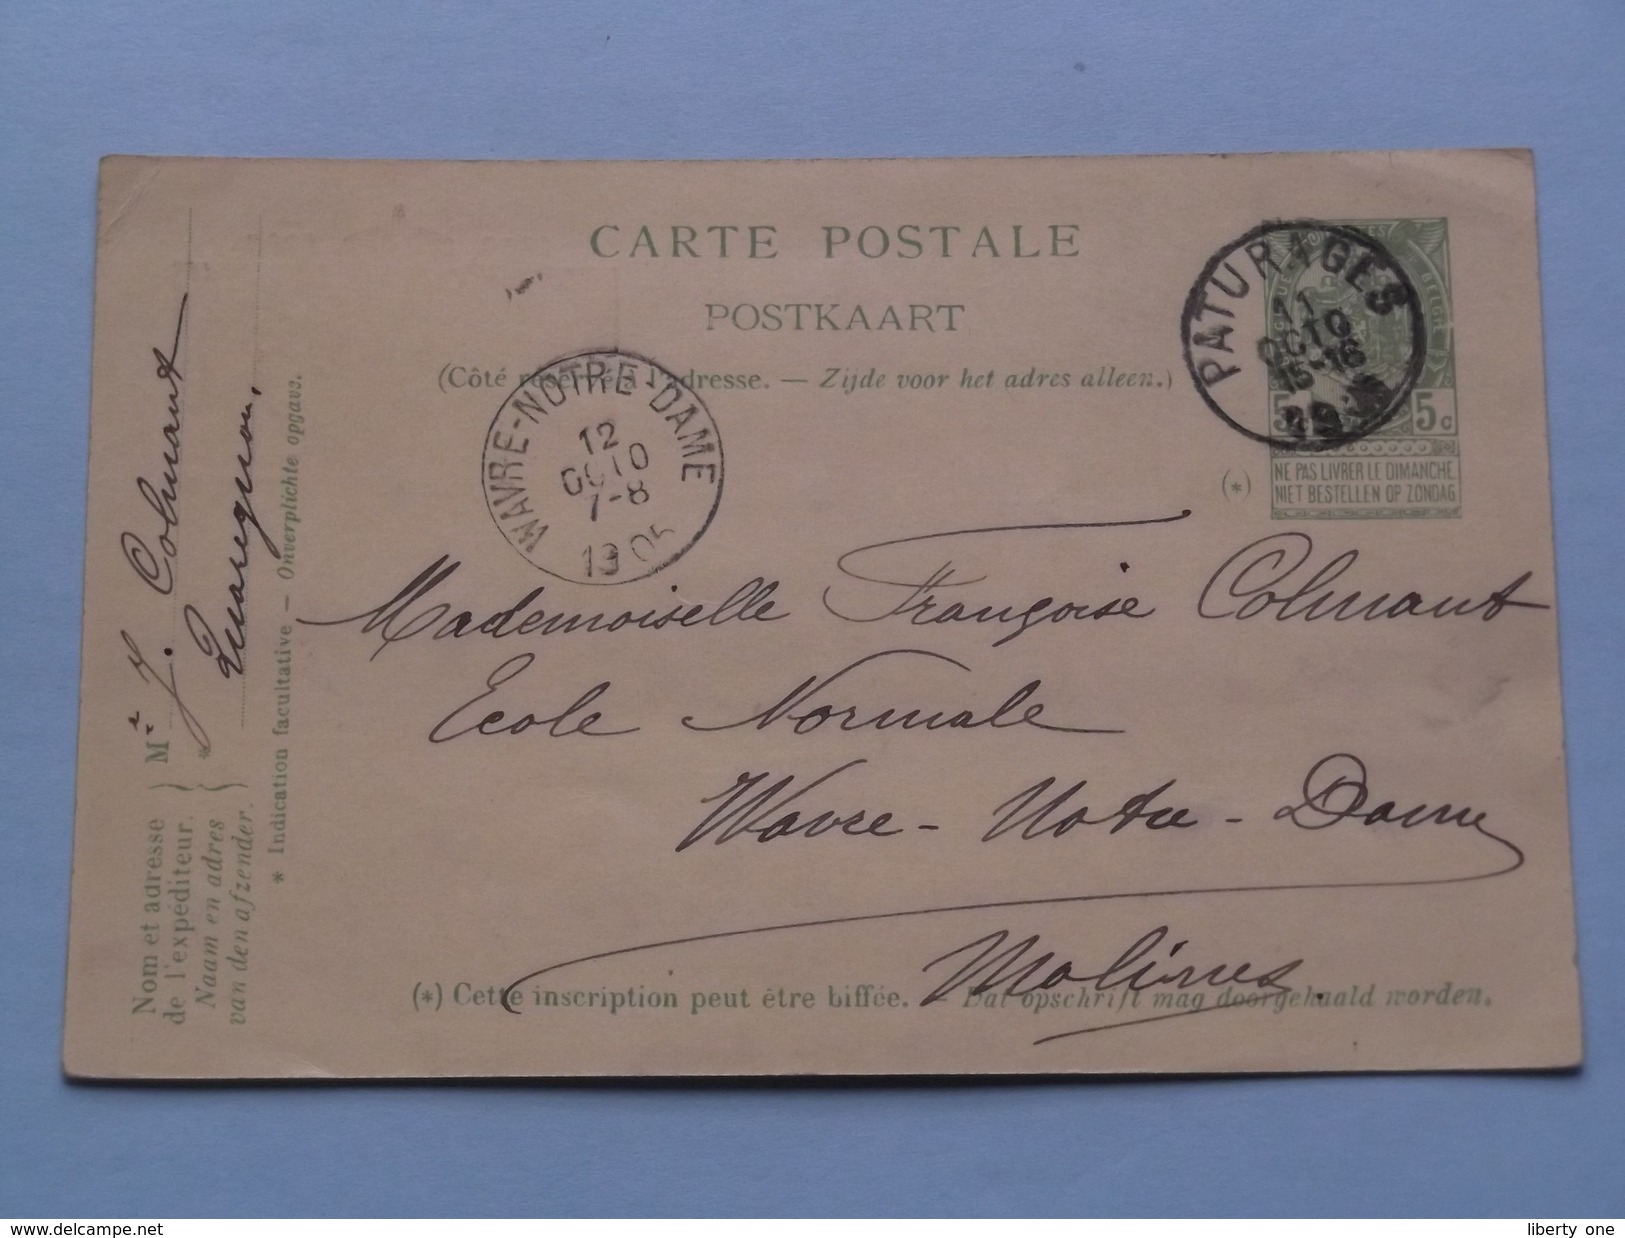 CARTE POSTALE
POSTKAART
(Côté réservé à l'adresse. — Zijde voor het adres alleen.)
PATURAGES
11
OCTO
15-16
WAVRE-NOTRE-DAME
12
OCTO
7-8
1905
BELGIQUE
BELGIË
5
5c
(*)
NE PAS LIVRER LE DIMANCHE
NIET BESTELLEN OP ZONDAG
Mademoiselle Françoise Colmant
Ecole Normale
Wavre-Notre-Dame
Malines.
(*) Cette inscription peut être biffée. — Dat opschrift mag doorgehaald worden.
Nom et adresse
de l'expéditeur.
Naam en adres
van den afzender.
M
J. Colmant
*
Quaregnon.
* Indication facultative — Onverplichte opgave.
delcampe.net
liberty one